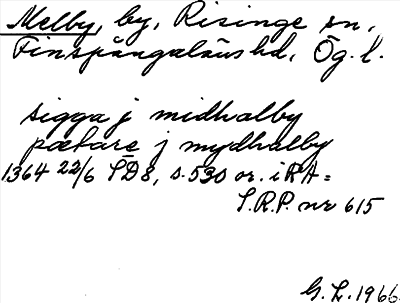 Melby, by, Risinge sn,
Finspångaläns hd, Ög. l.
sigga j midhalby
pætare j mydhalby
1364 22/6 SD8, s. 530 or. i RA =
S.R.P. nr 615
G. L. 1966.